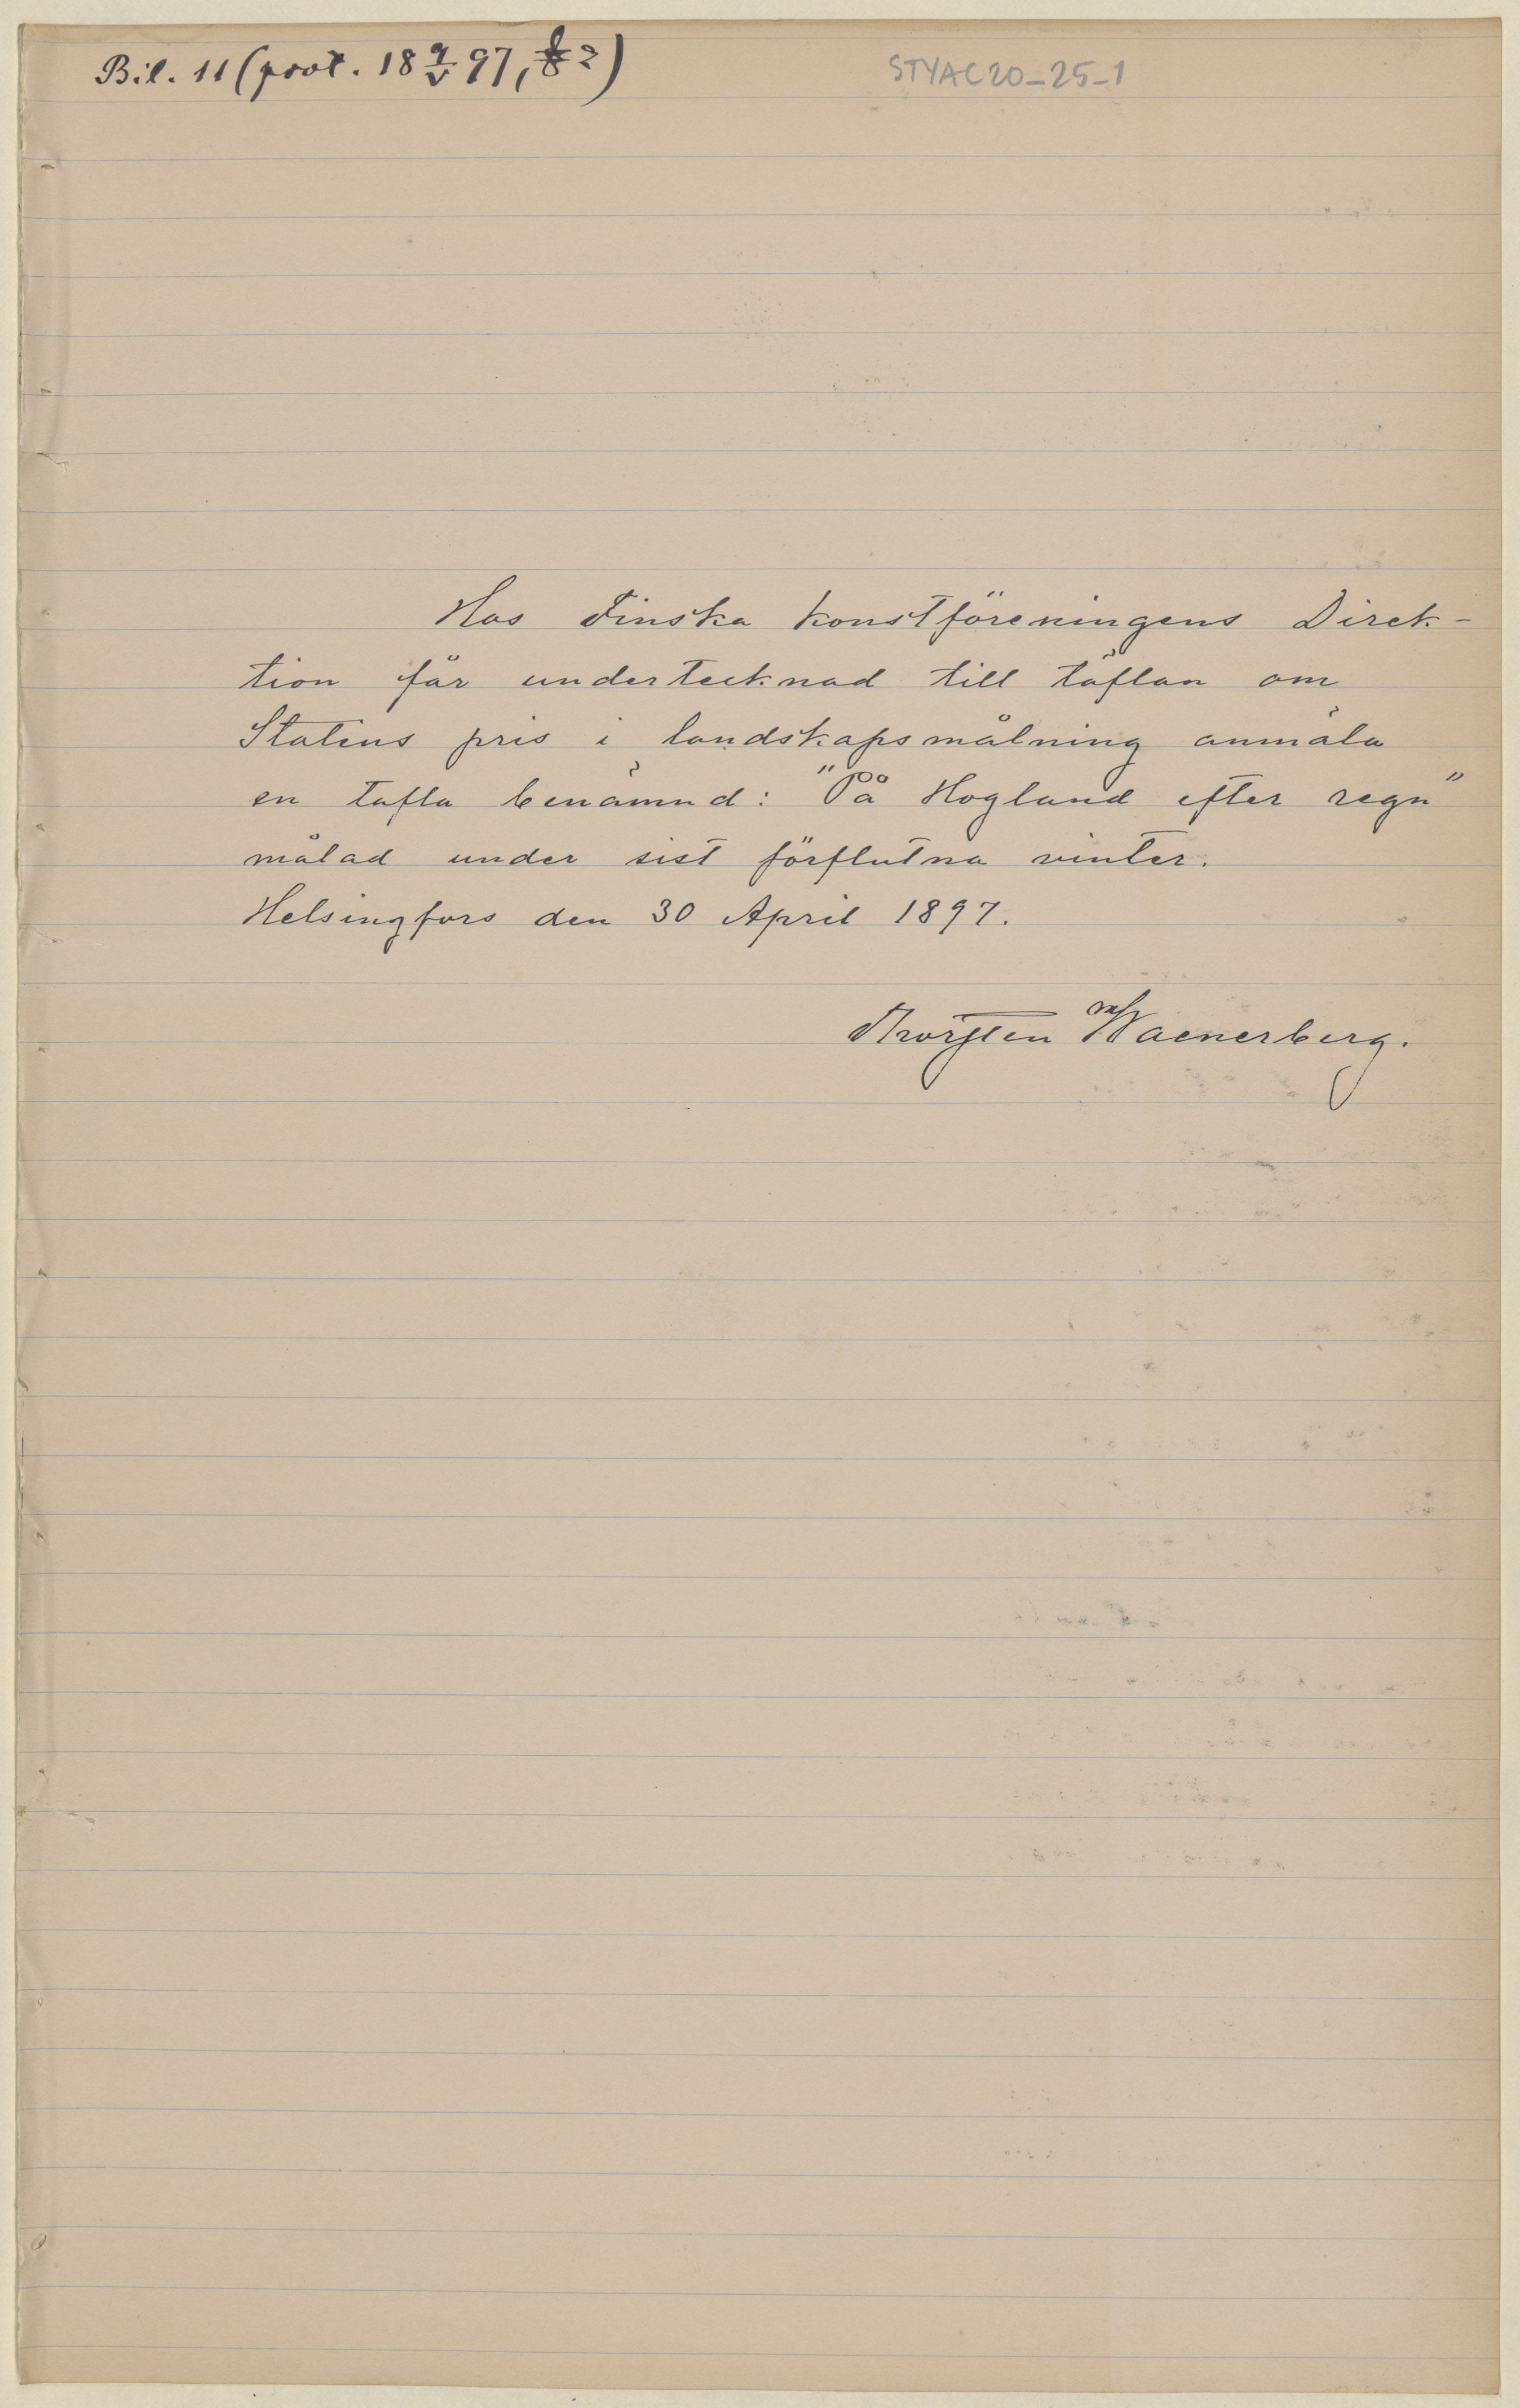 Bil. 11 (prot. 18 9/V 97, § 2)
STYAC20_25_1
Hos Finska konstföreningens Direk-
tion får undertecknad till täflan om
Statens pris i landskapsmålning anmäla
en tafla benämnd: "På Hogland efter regn"
målad under sist förflutna vinter.
Helsingfors den 30 April 1897.
Thorsten Waenerberg.